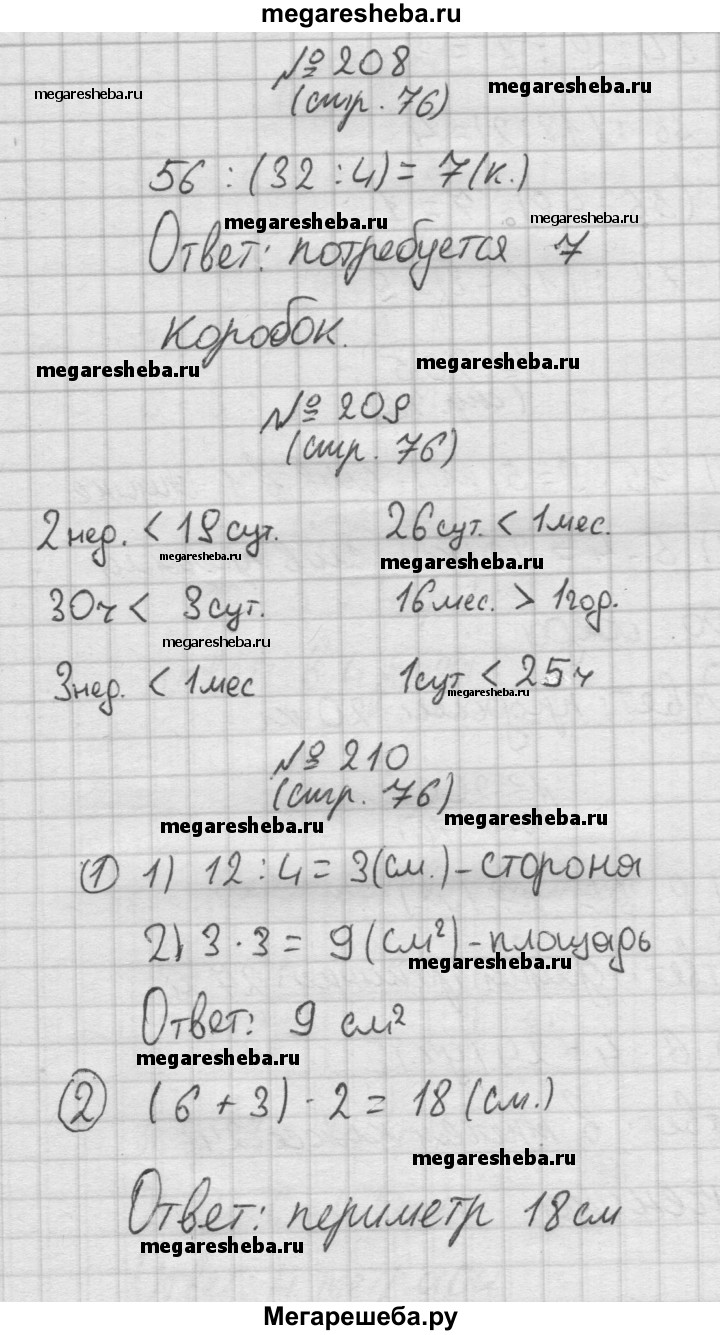 megaresheba.ru
№ 208
megaresheba.ru
megaresheba.ru
(стр. 76)
56 : (32 : 4) = 7 (к.)
megaresheba.ru
megaresheba.ru
Ответ: потребуется 7
коробок.
megaresheba.ru
megaresheba.ru
№ 209
(стр. 76)
2 нед. < 19 сут. 26 сут. < 1 мес.
megaresheba.ru
megaresheba.ru
30ч < 3 сут. 16 мес. > 1 год.
megaresheba.ru
3 нед. < 1 мес 1 сут < 25 ч
megaresheba.ru
№ 210
(стр. 76)
megaresheba.ru
megaresheba.ru
① 1) 12 : 4 = 3 (см.) - сторона
2) 3 · 3 = 9 (см²) - площадь
megaresheba.ru
Ответ: 9 см²
megaresheba.ru
② (6 + 3) · 2 = 18 (см.)
megaresheba.ru
Ответ: периметр 18 см
megaresheba.ru
Мегарешеба.ру